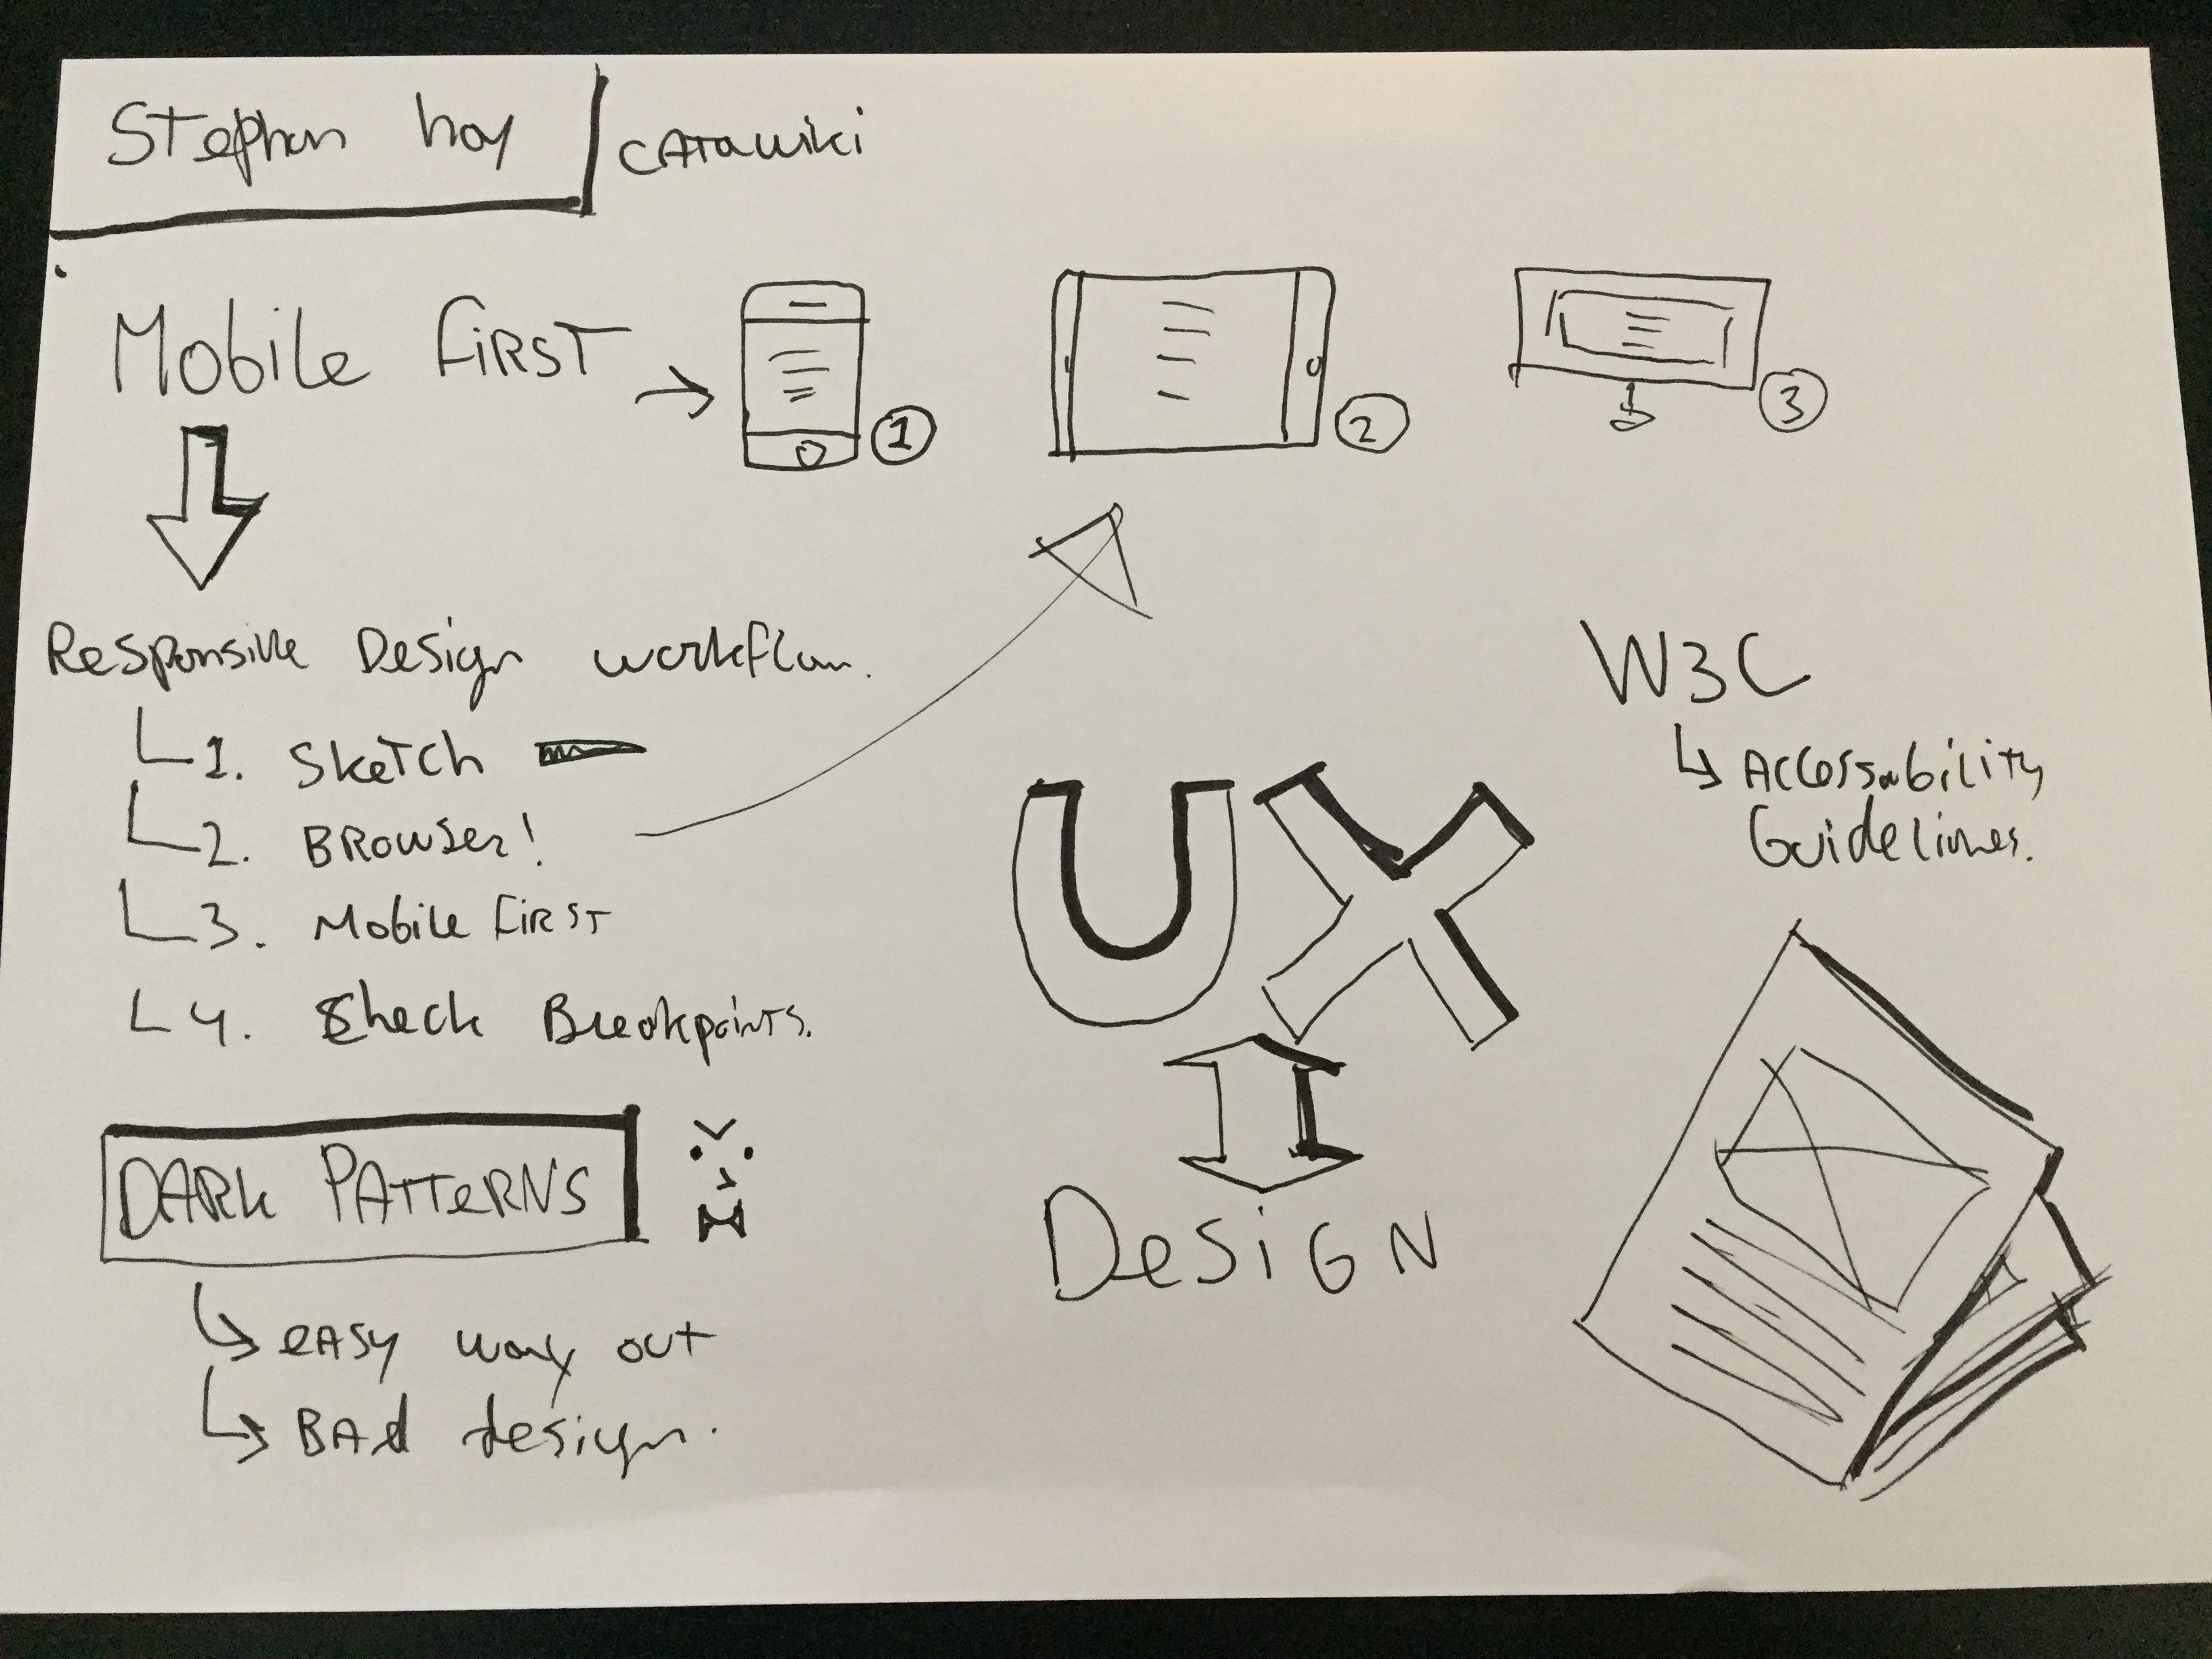 Stephan hay
CATawiki
Mobile FIRST
1
2
3
Responsive Design workflow.
1. SkeTch
2. BROWSer!
3. Mobile FIRST
4. Check Breakpoints.
DARk PATTeRNS
eASy way out
BAd design.
UX
DeSiGN
W3C
Accessability
Guidelines.